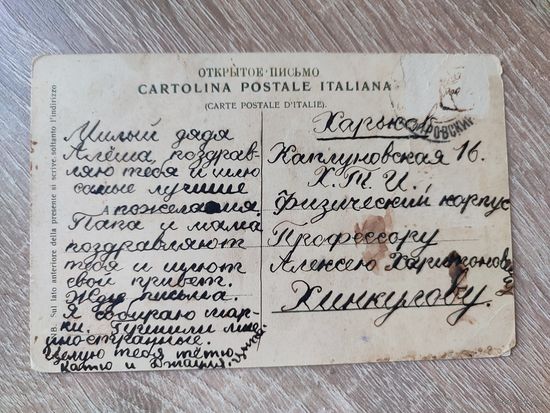 ОТКРЫТОЕ ПИСЬМО
CARTOLINA POSTALE ITALIANA
(CARTE POSTALE D'ITALIE).
NB. Sul lato anteriore della presente si scrive soltanto l'indirizzo
Милый дядя
Алёша, поздрав-
ляю тебя и шлю
самые лучшие
пожелания.
Папа и мама
поздравляют
тебя и шлют
свой привет.
Жду письма.
Я собираю мар-
ки. Пришли мне
иностранные.
Целую тебя тётю
Катю и
Харьков
Каплуновская 16.
Х. Т. И.
Физический корпус
Профессору
Алексею Харитонов
Хинкулову.